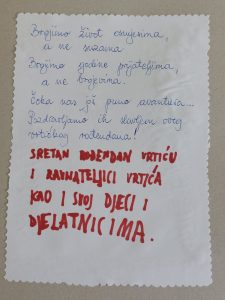 Brojimo život osmjesima,
a ne suzama
Brojimo godine prijateljima,
a ne brojevima.
Čeka nas još puno avantura...
Radujemo ih slavljem ovog
vrtićkog rođendana!
SRETAN ROĐENDAN VRTIĆU
I RAVNATELJICI VRTIĆA
KAO I SVOJ DJECI I
DJELATNICIMA.